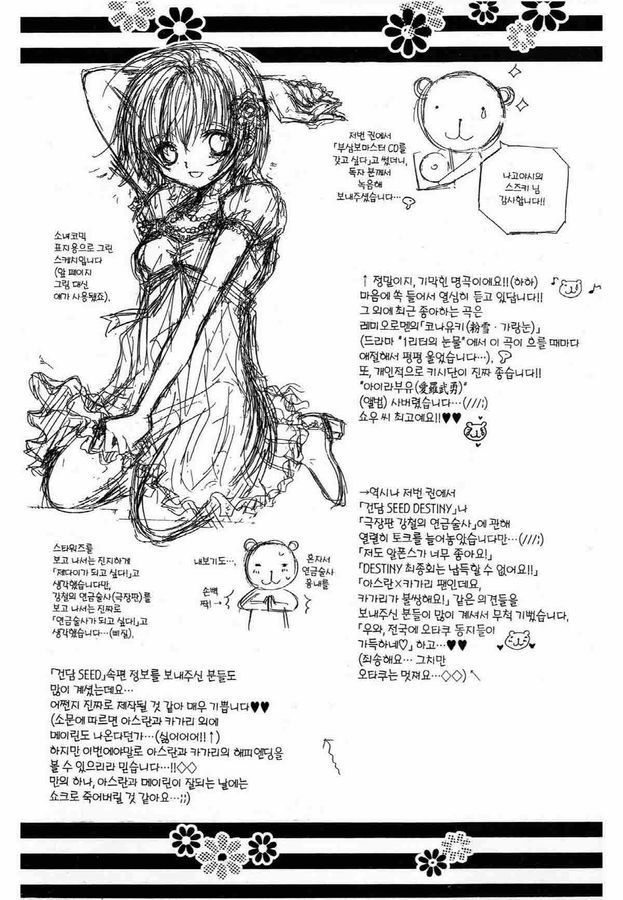 저번 권에서
「부심보마스터 CD를
갖고 싶다」고 썼더니,
독자 분께서
녹음해
보내주셨습니다…
나고야시의
스즈키 님
감사합니다!!
소녀코믹
표지용으로 그린
스케치입니다
(앞 페이지
그림 대신
얘가 사용됐죠).
↑ 정말이지, 기막힌 명곡이에요!!(하하)
마음에 쏙 들어서 열심히 듣고 있답니다!!
그 외에 최근 좋아하는 곡은
레미오로멘의 「코나유키(粉雪·가랑눈)」
(드라마 "1리터의 눈물"에서 이 곡이 흐를 때마다
애절해서 펑펑 울었습니다…).
또, 개인적으로 키시단이 진짜 좋습니다!!
"아이라부유(愛羅武勇)"
(앨범) 사버렸습니다…(///;)
쇼우 씨 최고예요!!♥♥
→역시나 저번 권에서
「건담 SEED DESTINY」나
「극장판 강철의 연금술사」에 관해
열렬히 토크를 늘어놓았습니다만…(///;)
「저도 알폰스가 너무 좋아요!」
「DESTINY 최종회는 납득할 수 없어요!!」
「아스란×카가리 팬인데요,
카가리가 불쌍해요!」 같은 의견들을
보내주신 분들이 많이 계셔서 무척 기뻤습니다.
「우와, 전국에 오타쿠 동지들이
가득하네♡」하고…♥♥
(죄송해요… 그치만
오타쿠는 멋져요…◇◇)↖
스타워즈를
보고 나서는 진지하게
「제다이가 되고 싶다!」고
생각했습니다만,
강철의 연금술사(극장판)를
보고 나서는 진짜로
「연금술사가 되고 싶다」고
생각했습니다…(삐질).
내보기도…,
혼자서
연금술사
흉내를
손뼉
짝!→
「건담 SEED」속편 정보를 보내주신 분들도
많이 계셨는데요…
어쩐지 진짜로 제작될 것 같아 매우 기쁩니다♥♥
(소문에 따르면 아스란과 카가리 외에
메이린도 나온다던가…(싫어어어!!↑)
하지만 이번에야말로 아스란과 카가리의 해피엔딩을
볼 수 있으리라 믿습니다…!!◇◇
만의 하나, 아스란과 메이린이 잘되는 날에는
쇼크로 죽어버릴 것 같아요…;;)